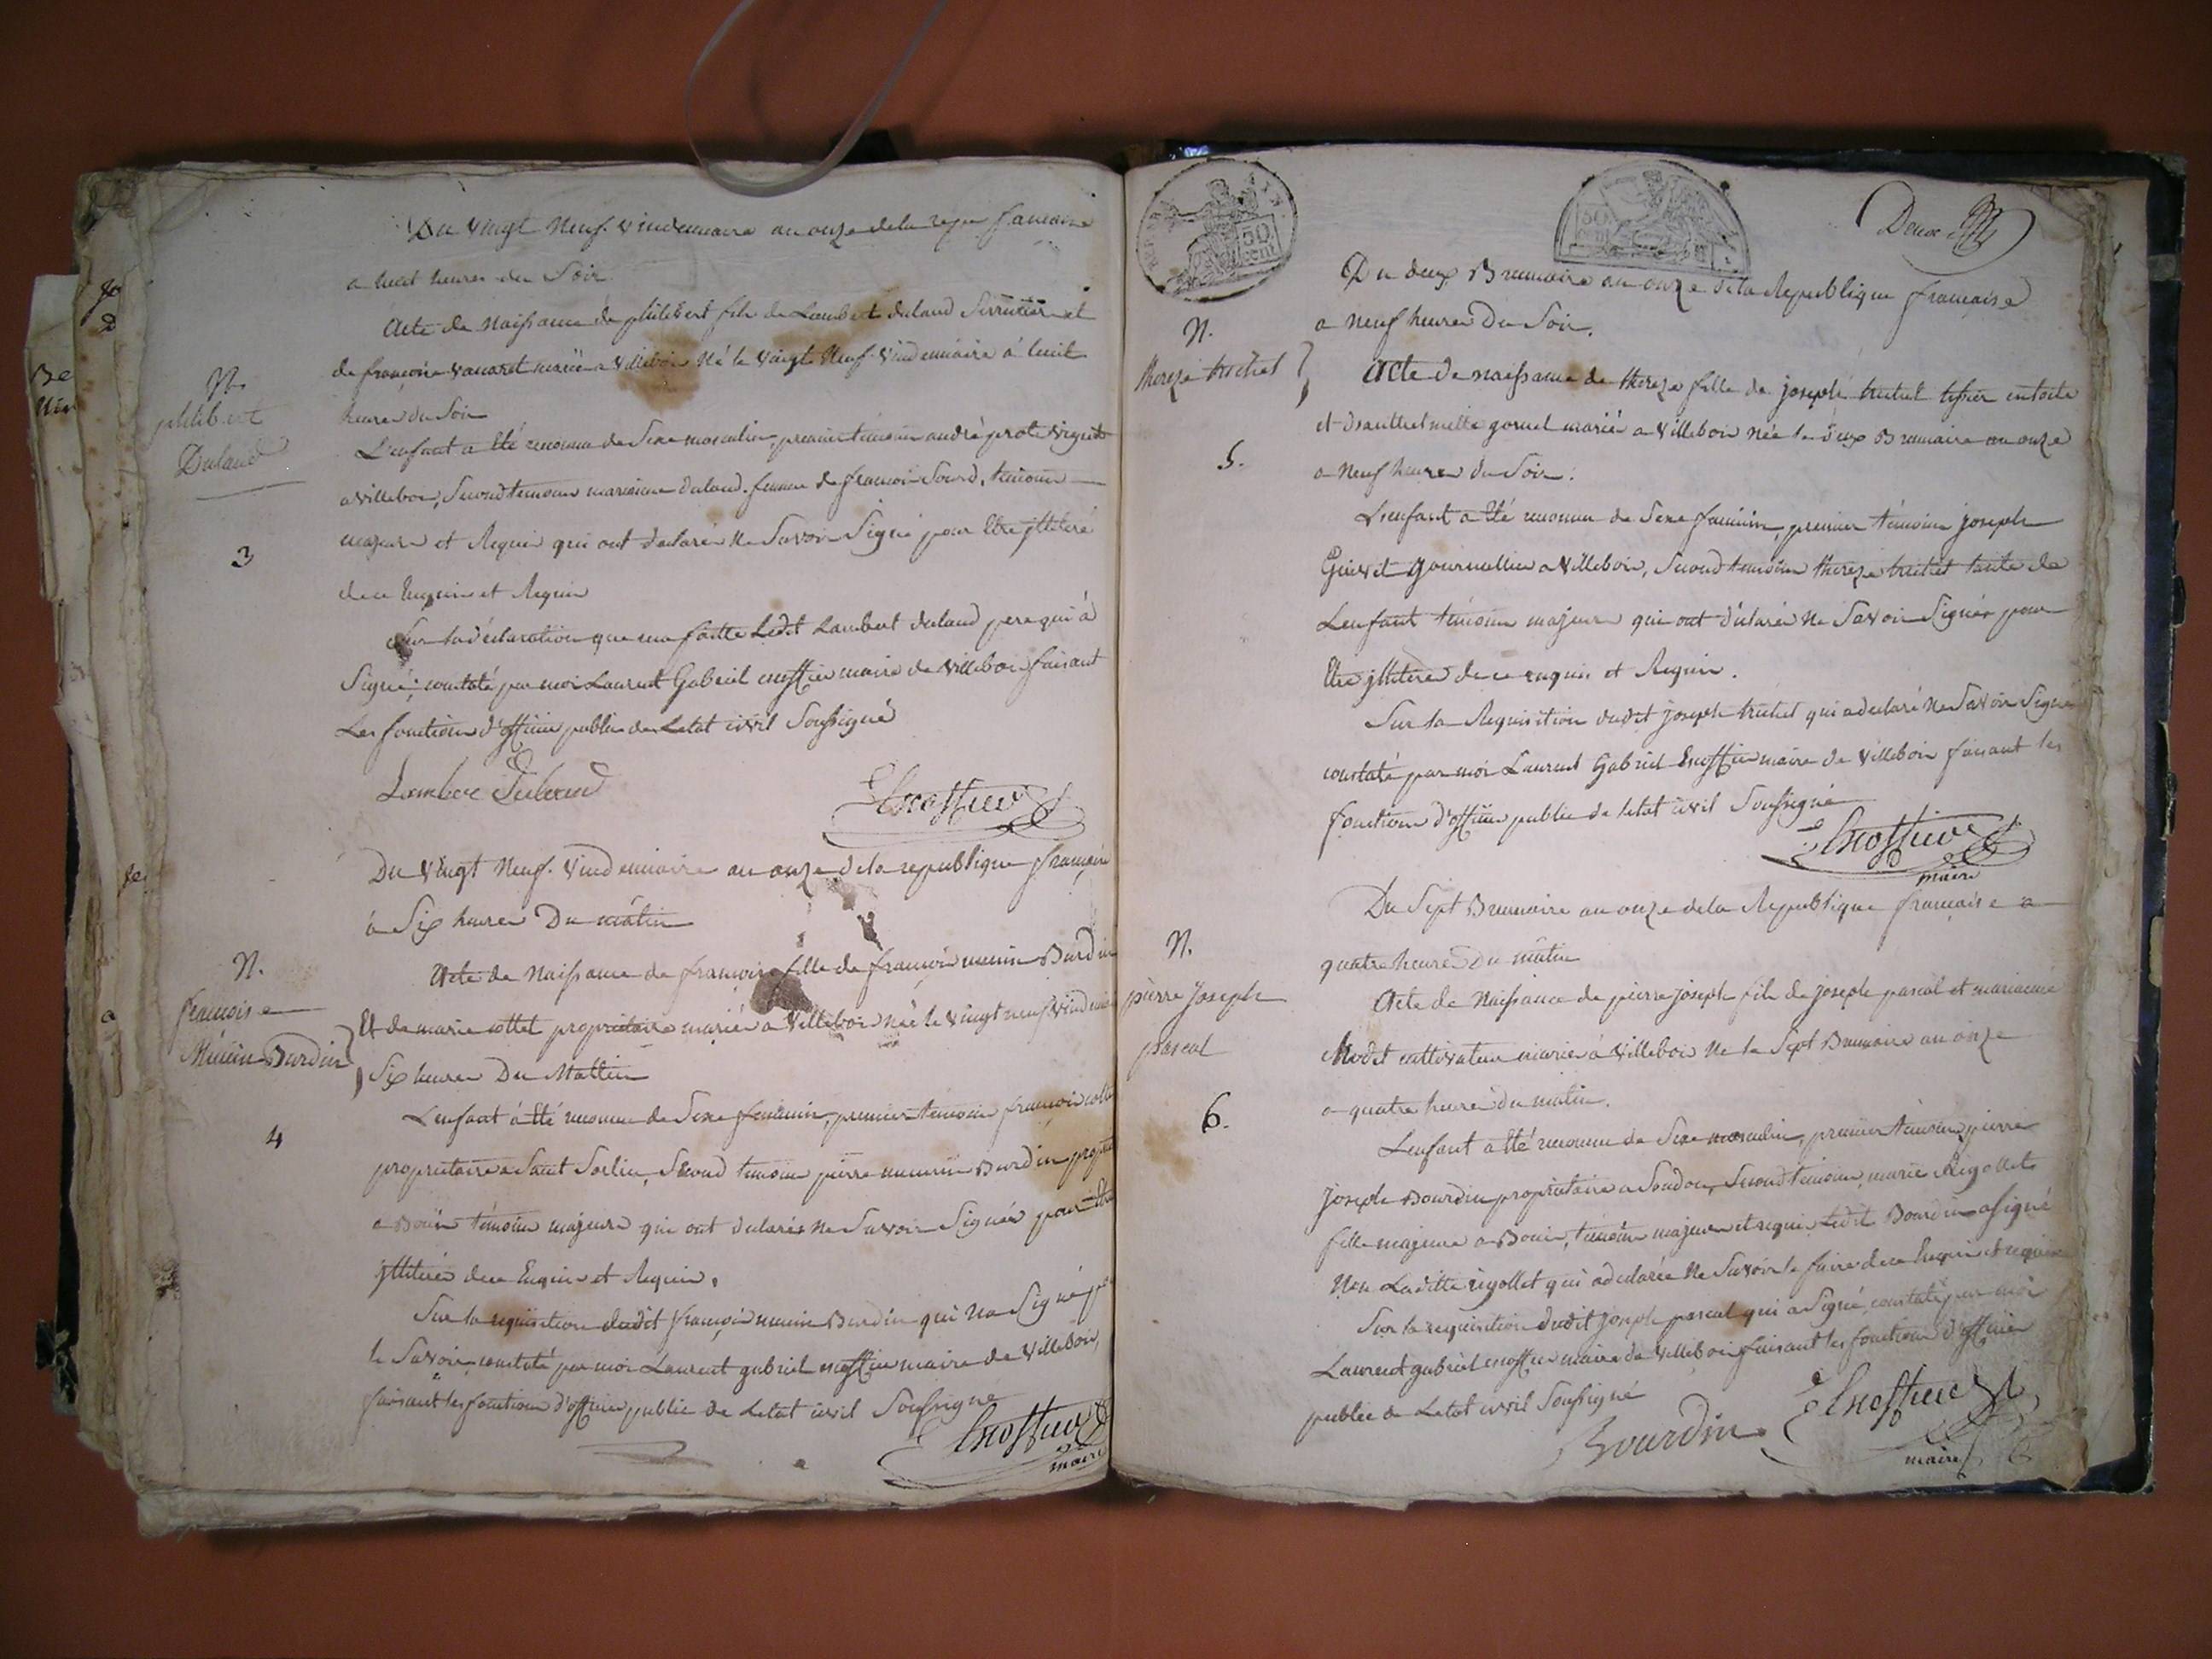 Du vingt Neuf. vindemiaire an onze dela repu francaise
a huit heures du Soir
Acte de Naissance de philibert fils de Lambert dulaud Serrurier et
de francoise vacaret mariés a villebois Né le vingt Neuf vindemiaire á huit
heures du Soir
N.
philibert
Dulaud
3
L'enfant a été reconnu de Sexe masculin, premier témoin andré prote
a villebois, Second temoin marianne dulaud. femme de francois Sourd, temoins
majeurs et Requis qui ont declarés Ne Savoir Signé pour Etre jlliteré
de ce Enquis et Requis
Sur la déclaration que ma faitte Ledit Lambert dulaud pere qui á
Signé; constaté par moi Laurent Gabriel escoffier maire de villebois faisant
Les fonctions d'officier public de Letat civil Soussigné
Lambere Dulaud
Escoffier
Du vingt Neuf. vindemiaire an onze dela republique française
á Six heures Du mâtin
Acte de Naissance de françoise fille de françois munin Burdin
Et de marie cottet propriétaire mariés a villebois Née le vingt neuf vindemi
Six heures Du Mattin
N.
francoise
Munin Burdin
4
L'enfant á été reconnu de Sexe féminin, premier temoin françois cotte
propriétaire a Saint Sorlin, Second temoin pierre munin Burdin propri
a Bouis témoins majeurs qui ont declarés Ne Savoir Signés pour Etre
jlliterés dece Enquis et Requis.
Sur la requisition dudit françois munin Burdin qui Na Signé p
le Savoir constaté par moi Laurent gabriel escoffier maire de villebois,
faisant les fonctions d'officier public de Letat civil Soussigné
Escoffier
maire
Deux
50
Du deux Brumaire an onze de la Republique française
a Neuf heures Du Soir.
N.
thereze trichet
5.
Acte de naissance de thereze fille de joseph trichet tissier en toile
et d'anthelmette gornet mariés a villebois Née le deux Brumaire an onze
a Neuf heures du Soir.
L'enfant a Eté reconnu de Sexe féminin, premier témoin joseph
Grivet a villebois, Second temoin thereze trichet tante de
L'enfant témoins majeurs qui ont déclarés Ne Savoir Signér pour
Etre jlliterés de ce enquis et Requis.
Sur la Requisition dudit joseph trichet qui a declaré Ne Savoir Signé
constaté par moi Laurent Gabriel Escoffier maire de villebois faisant les
fonctions d'officier public de letat civil Soussigné
Escoffier
maire
Du Sept Brumaire an onze dela Republique française a
quatre heures Du mâtin
N.
pierre Joseph
pascal
6.
Acte de Naissance de pierre joseph fils de joseph pascal et marianne
Modet cultivateur mariés á villebois Ne le Sept Brumaire an onze
a quatre heures du matin.
L'enfant a été reconnu de Sexe masculin, premier témoin pierre
joseph Bourdin propriétaire a Soudon, Second témoin, marie Rigollet
fille majeure a Bouis, témoins majeurs et requis Ledit Bourdin a Signé
Non Laditte rigollet qui a declarée Ne Savoir le faire dece Enquis et requis
Sur la requisition dudit joseph pascal qui a Signé, constaté par moi
Laurent gabriel escoffier maire de villebois faisant les fonctions d'officier
public de Letat civil Soussigné
Bourdin
Escoffier
maire